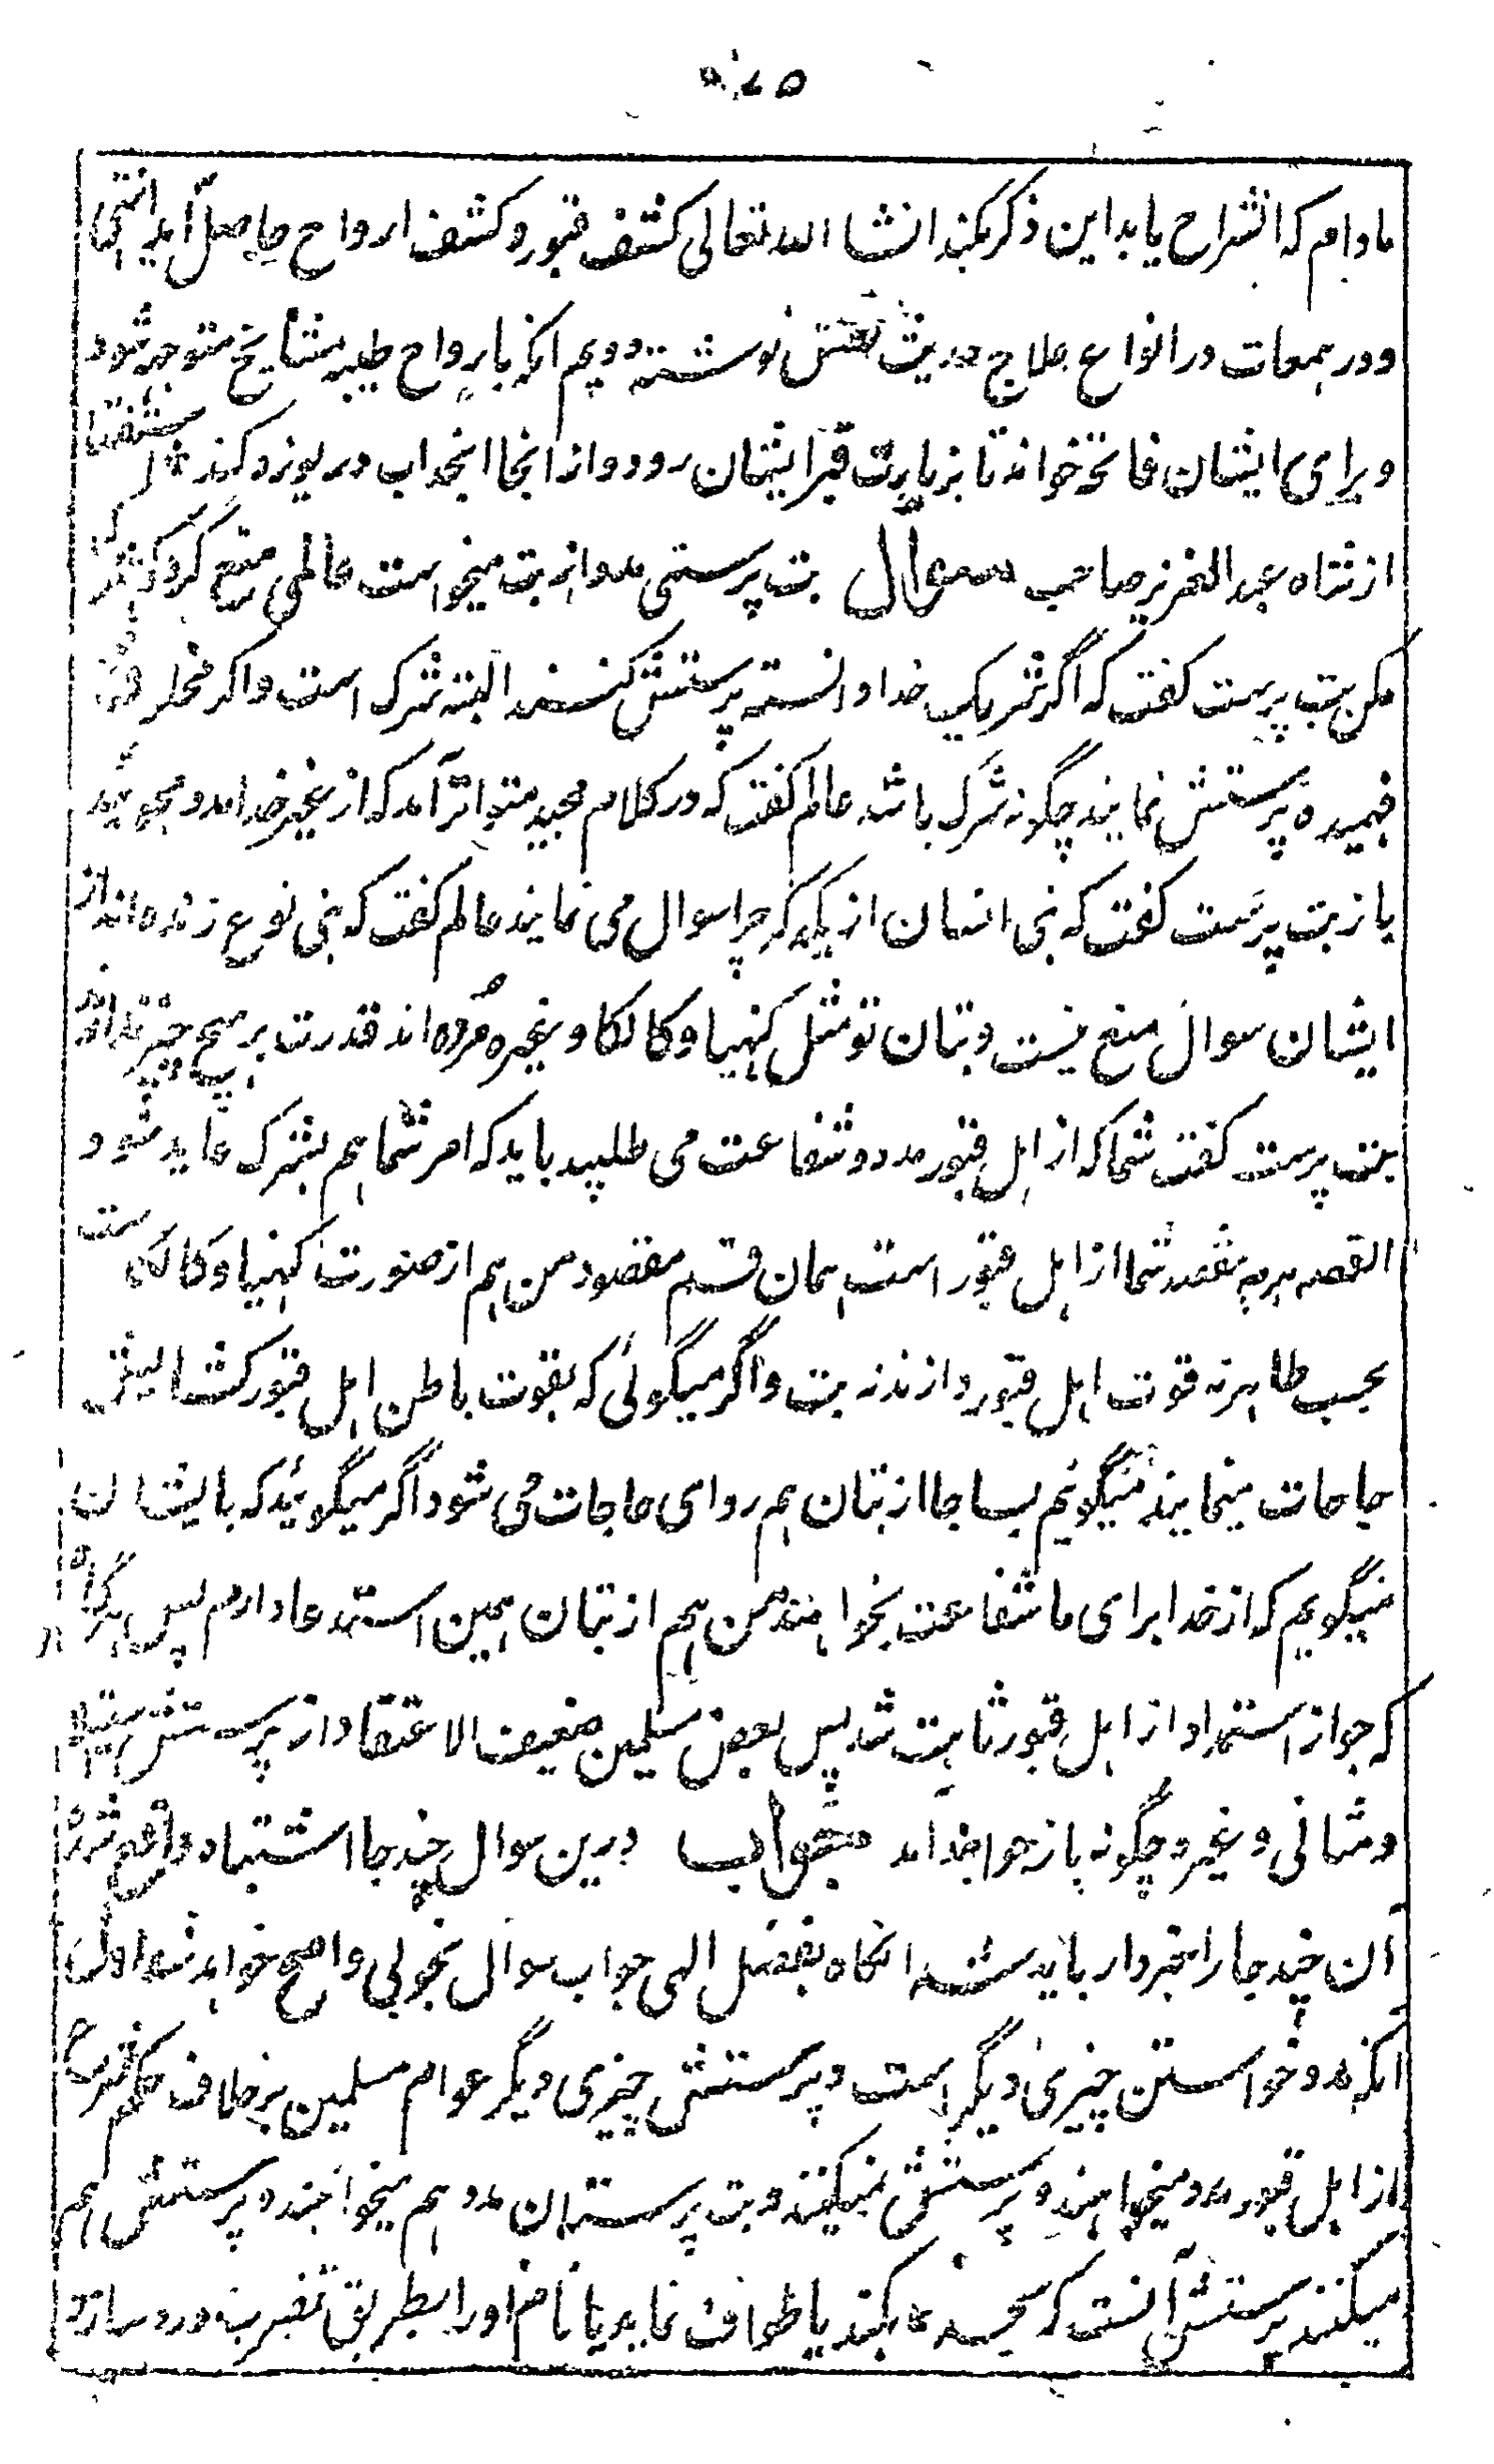 مادام که انشراح یابد این ذکر بکند انشا الله تعالی کشف قبور و کشف ارواح حاصل آید انتهی
و در همعات در انواع علاج حدیث نفس نوشته دویم آنکه بارواح طیبه مشایخ متوجه شود
و برای ایشان فاتحه خواند تا بزیارت قبر ایشان رود و از انجا انجذاب دریوزه کند استفتا
از شاه عبد العزیز صاحب سوال بت پرستی مدد از بت میخواست عالمی منع کرد که شرک
مکن بت پرست گفت که اگر شریک خدا دانسته پرستش کنند البته شرک است و اگر مخلوق
فهمیده پرستش نمایند چگونه شرک باشد عالم گفت که در کلام مجید متواتر آمد که از غیر خدا مدد مجوئید
باز بت پرست گفت که بنی انسان از یکدگر چرا سوال می نمایند عالم گفت که بنی نوع زنده اند از
ایشان سوال منع نیست و بتان تو مثل کنهیا و کالکا و غیره مرده اند قدرت بر هیچ چیز ندارند
بت پرست گفت شما که از اهل قبور مدد و شفاعت می طلبید باید که امر شما هم بشرک عاید شود
القصه هرچه مقصد شما از اهل قبور است همان قسم مقصود من هم از صورت کنهیا و کالکا ست
بحسب ظاهر نه قوت اهل قبور دارند نه بت و اگر میگوئی که بقوت باطن اهل قبور کشایش
حاجات مینمایند میگویم بسا جا از بتان هم روای حاجات می شود اگر میگوئید که بایشان
میگویم که از خدا برای ما شفاعت بخواهند من هم از بتان همین استدعا دارم پس هرگاه
که جواز استمداد از اهل قبور ثابت شد پس بعض مسلمین ضعیف الاعتقاد از پرستش سیتلا
و مسانی و غیره چگونه باز خواهند آمد جواب درین سوال چند جا اشتباه واقع شده
آن چند جا را خبردار باید شد انگاه بفضل الهی جواب سوال بخوبی واضح خواهد شد اول
آنکه مدد خواستن چیزی دیگر است و پرستش چیزی دیگر عوام مسلمین برخلاف حکم شرع
از اهل قبور مدد میخواهند و پرستش نمیکنند و بت پرستان مدد هم میخواهند و پرستش هم
میکنند پرستش آنست که سجده بکند یا طواف نماید یا نام او را بطریق تقرب ورد سازد